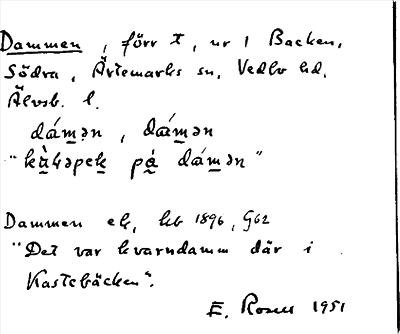 Dammen, förr t, nr 1 Backen,
Södra, Ärtemarks sn, Vedbo hd,
Älvsb. l.
dám̲ən, dám̲ən
pá̲ dám̲ən"
Dammen ek, kb 1896, G62
"Det var kvarndamm där i
Kastebäcken".
E. Rosell 1951